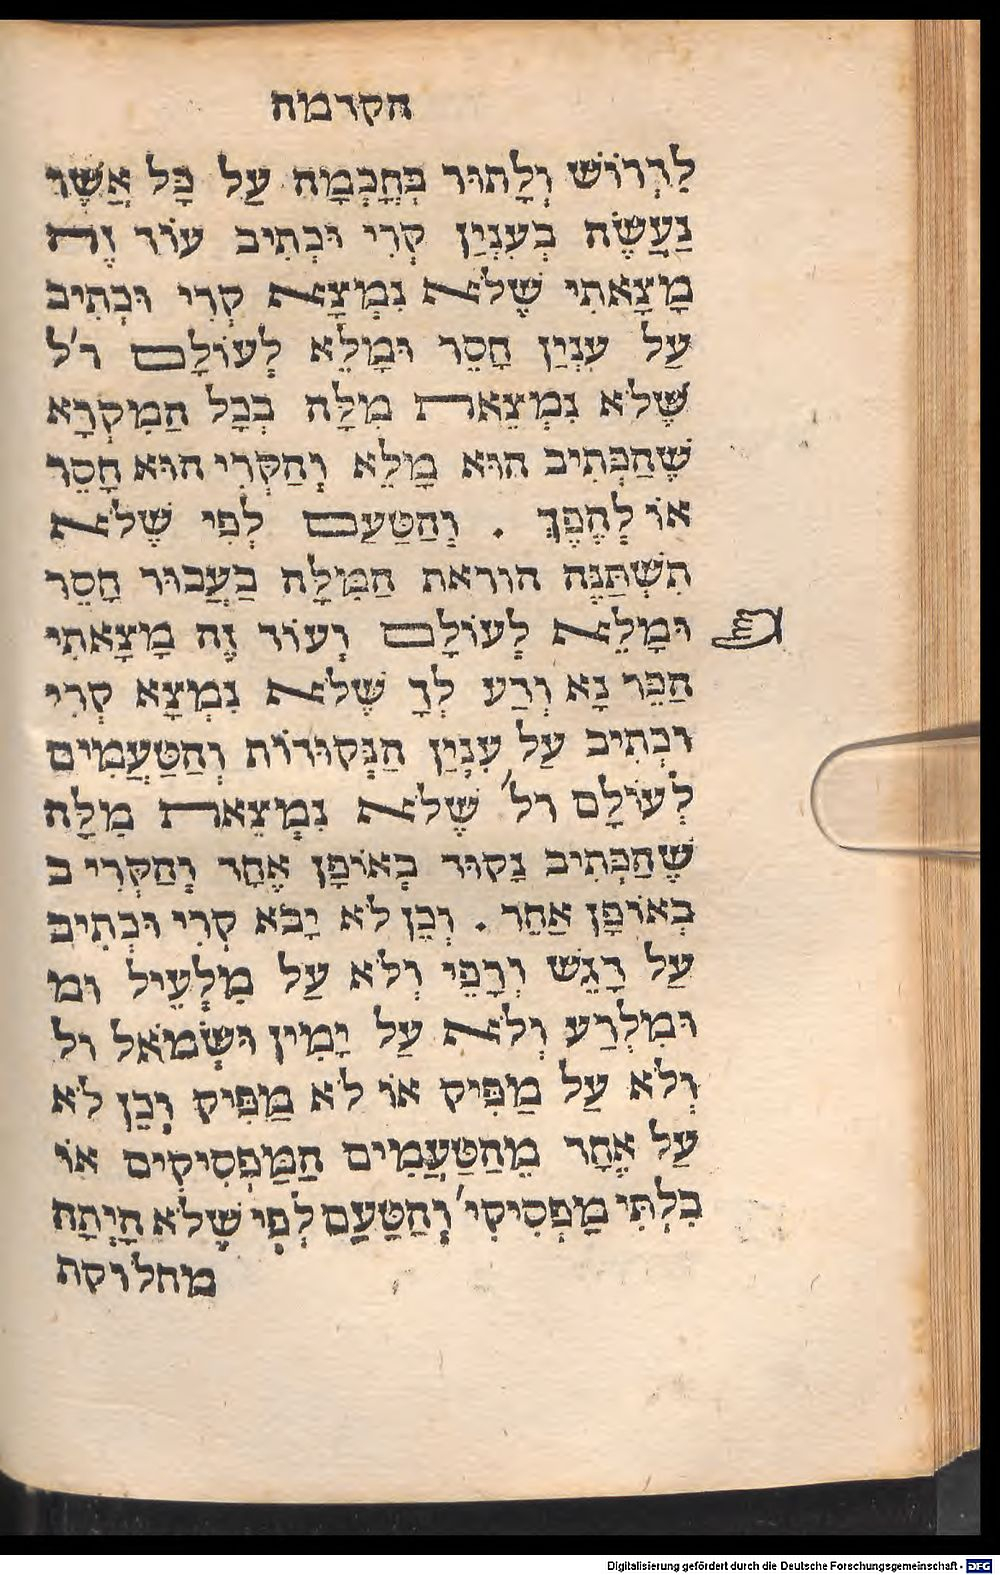 הקדמה
לִדְרוֹשׁ וְלָתוּר בְּחָכְמָה עַל כָּל אֲשֶׁר
נַעֲשֶׂה בְעִנְיַן קְרִי וּכְתִיב עוֹד זֶה
מָצָאתִי שֶׁלֹא נִמְצָא קְרִי וּכְתִיב
עַל עִנְיַן חָסֵר וּמָלֵא לְעוֹלָם ר'ל
שֶׁלֹא נִמְצֵאת מִלָּה בְּכָל הַמִקְרָא
שֶׁהַכְּתִיב הוּא מָלֵא וְהַקְּרִי הוּא חָסֵר
אוֹ לְהֶפֶךְ . וְהַטַּעַם לְפִי שֶׁלֹא
תִשְׁתַּנֶּה הוראת הַמִּלָּה בַּעֲבוּר חָסֵר
וּמָלֵא לְעוֹלָם וְעוֹד זֶה מָצָאתִי
הַכֵּר נָא וְדַע לְךָ שֶׁלֹא נִמְצָא קְרִי
וּכְתִיב עַל עִנְיַן הַנְּקוּדוֹת וְהַטַּעֲמִים
לְעוֹלָם רל' שֶׁלֹא נִמְצֵאת מִלָּה
שֶׁהַכְּתִיב נָקוּד בְּאוֹפָן אֶחָד וְהַקְּרִי ב
בְּאוֹפָן אַחֵר . וְכֵן לֹא יָבֹא קְרִי וּכְתִיב
עַל דָגֵשׁ וְרָפֵי וְלֹא עַל מִלְעֵיל ומ
וּמִלְרַע וְלֹא עַל יָמִין וּשְׂמֹאל ול
וְלֹא עַל מַפִּיק אוֹ לֹא מַפִּיק וְכֵן לֹא
עַל אֶחָד מֵהַטַּעֲמִים הַמַּפְסִיקִים אוֹ
בִלְתִּי מַפְסִיקִי' וְהַטַּעַם לְפִי שֶׁלֹא הָיְתָה
מחלוקת
Digitalisierung gefördert durch die Deutsche Forschungsgemeinschaft - DFG